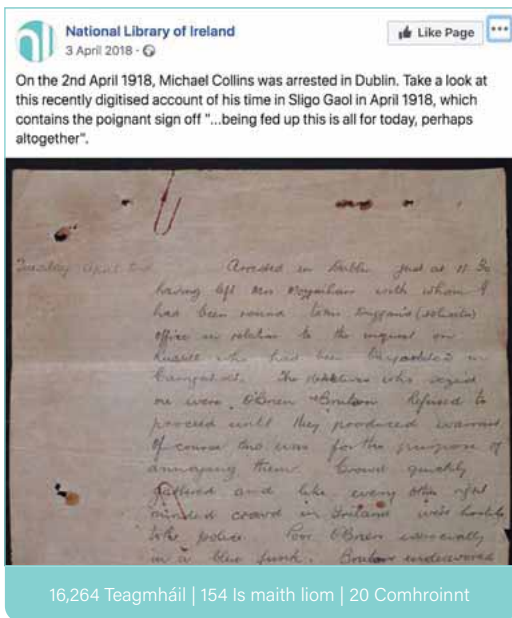 National Library of Ireland
3 April 2018 ·
Like Page
On the 2nd April 1918, Michael Collins was arrested in Dublin. Take a look at
this recently digitised account of his time in Sligo Gaol in April 1918, which
contains the poignant sign off "...being fed up this is all for today, perhaps
altogether".
Tuesday April 2nd Arrested in Dublin just at 11.30
having left Mrs with whom I
had been round to Duggan's (solicitor)
office in relation to the inquest on
who had been in
The detectives who seized
me were O'Brien & Bruton Refused to
proceed until they produced warrant
Of course this was for the purpose of
annoying them. Crowd quickly
gathered and like every other right
minded crowd in Ireland were hostile
to the police. Poor O'Brien was really
in a blue funk. Bruton endeavored
16,264 Teagmháil | 154 Is maith liom | 20 Comhroinnt